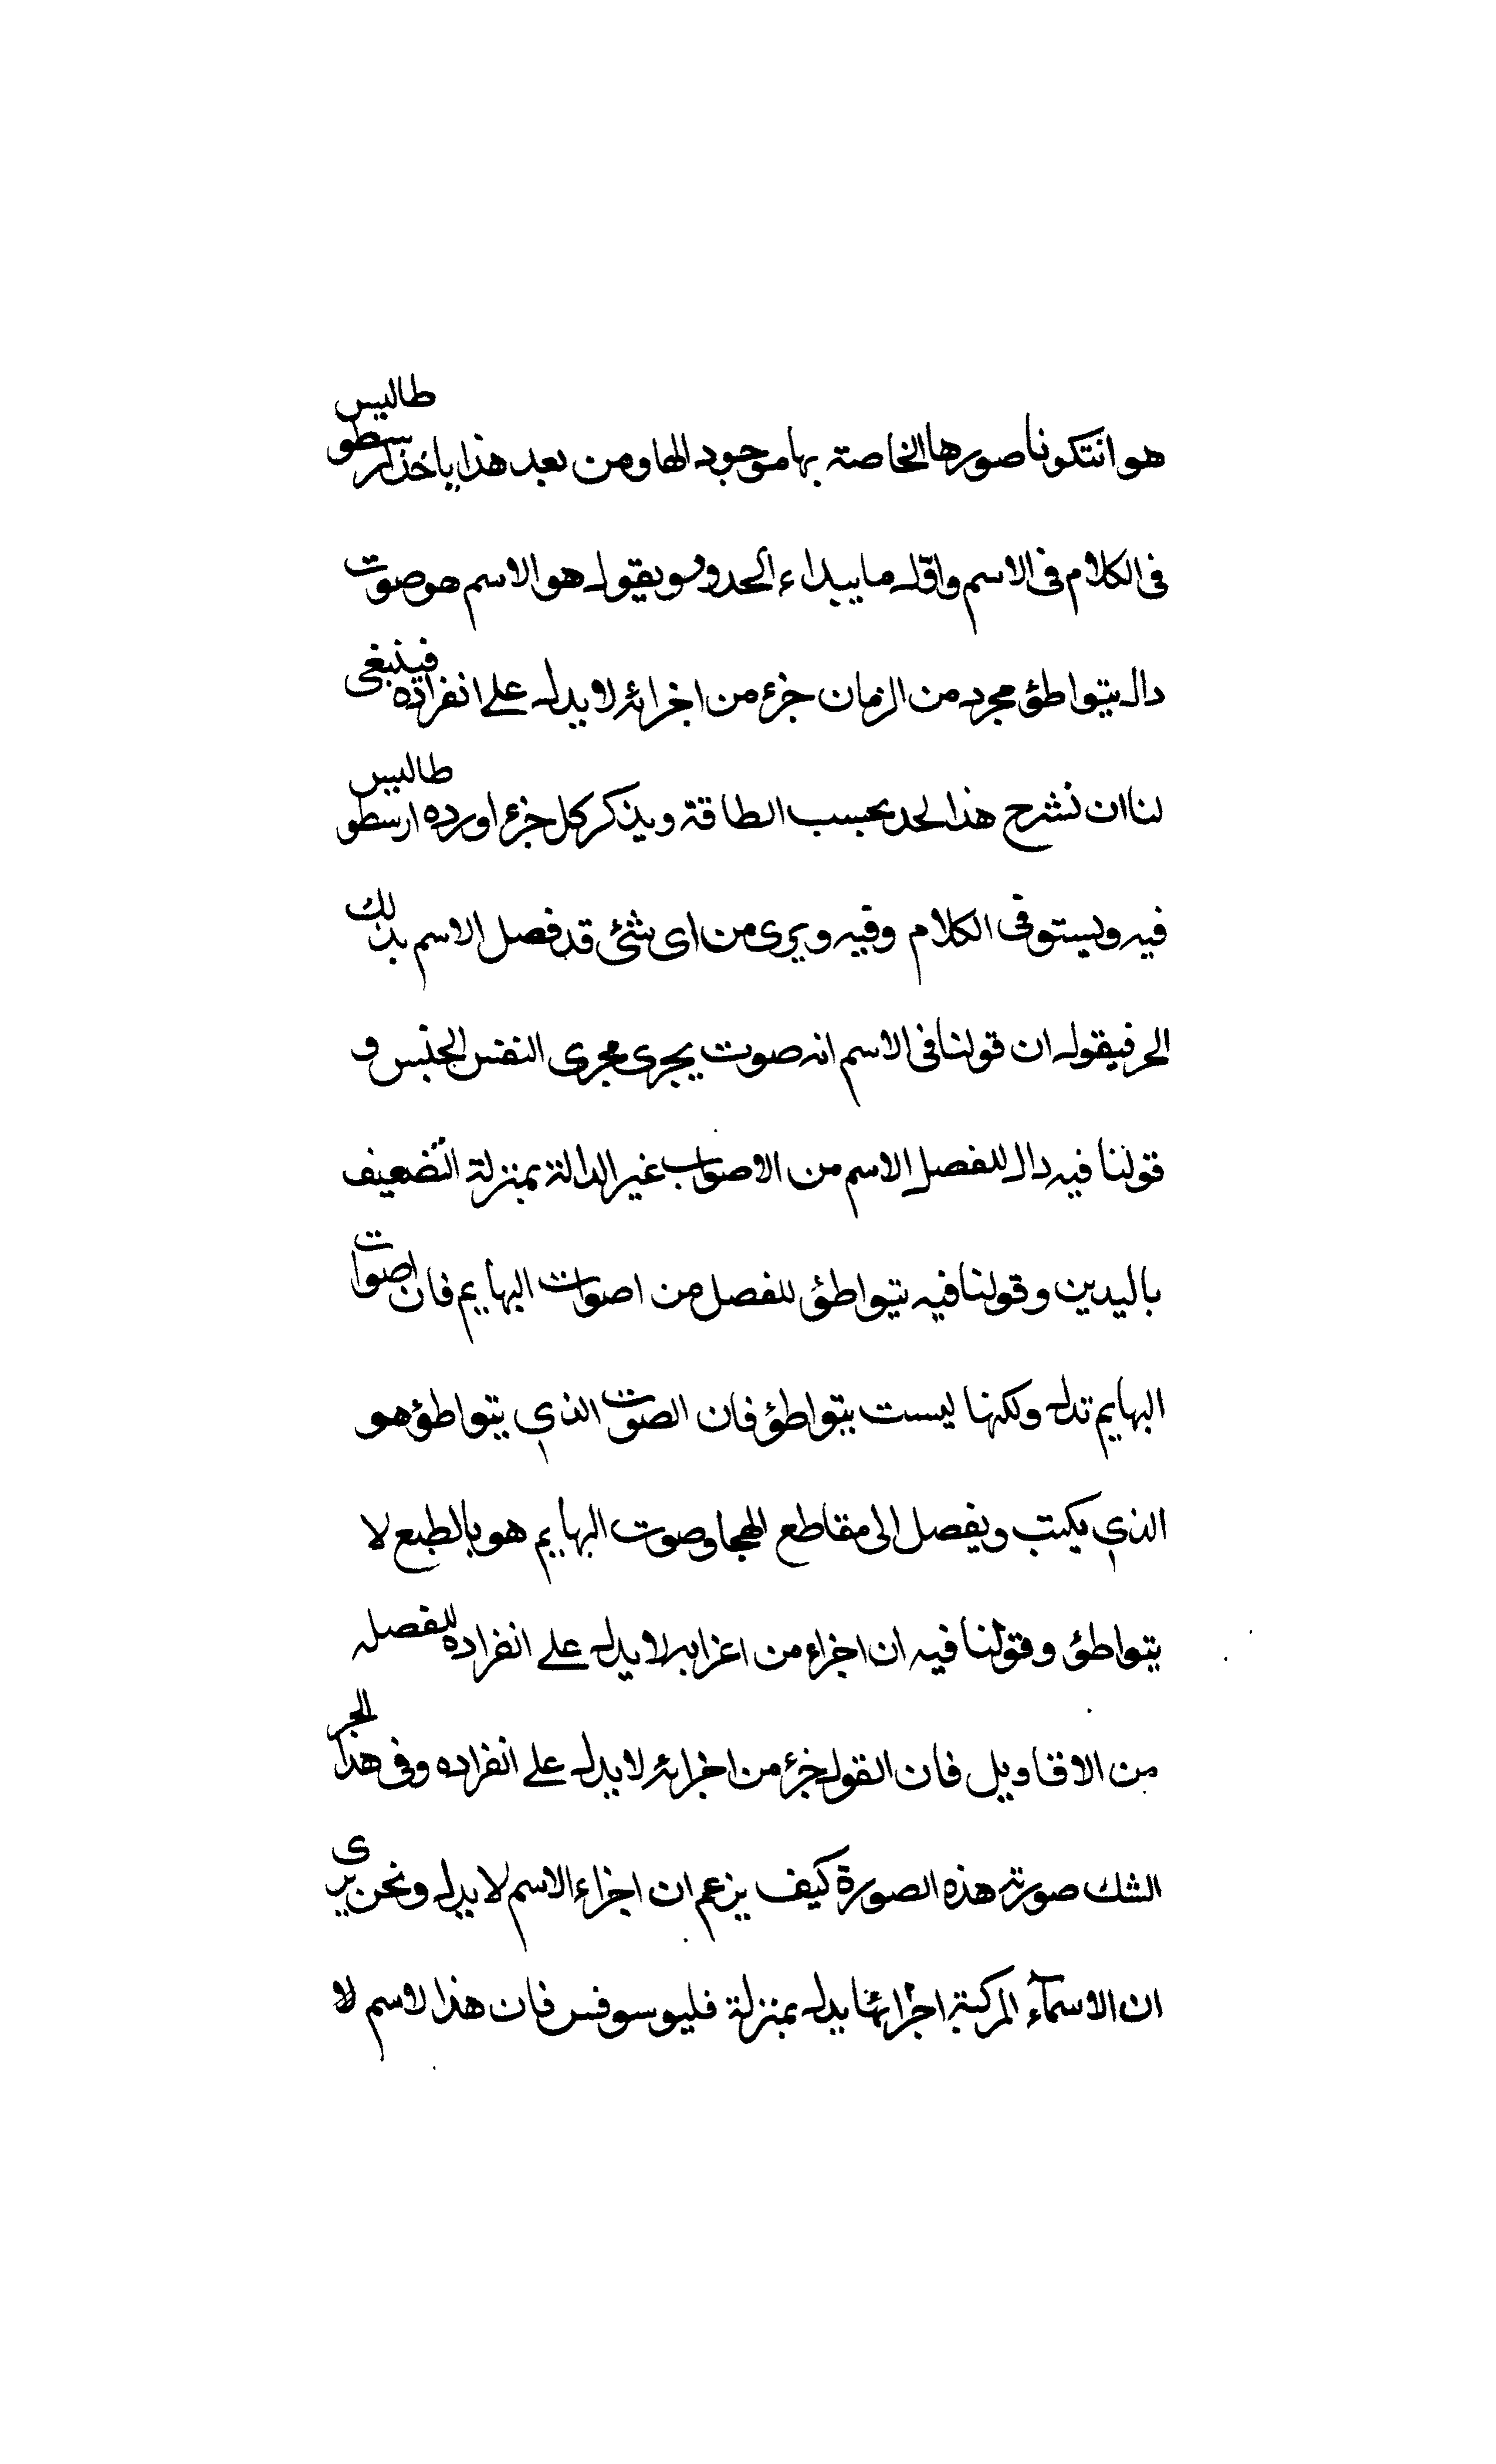 هو انتكونا صورها الخاصة بها موجود الها ومن بعد هذا ياخذ ارسطوطاليس
فى الكلام فى الاسم واوّل ما يبداء الحدو ويقول هو الاسم هو صوت
دال يتواطئ مجرد من الزمان جزء من اجزائه لا يدل على انفراده فينبغى
لنا ان نشرح هذا الحد بحسب الطاقة ويذكر كل جزء اورده ارسطوطاليس
فيه ويستوفى الكلام وفيه ويرى من اى شئ قد فصل الاسم بذلك
الحر فيقول ان قولنا فى الاسم انه صوت يجرى مجرى النفس الجنس و
قولنا فيه دال للفصل الاسم من الاصوات غير الدالة بمنزلة التضعيف
باليدين وقولنا فيه يتواطئ للفصل من اصوات البهايم فان اصوات
البهايم تدل ولكنها ليست بتواطئ فان الصوت الذي يتواطؤ هو
الذي يكتب ويفصل الى مقاطع الهجا وصوت البهايم هو بالطبع لا
يتواطئ وقولنا فيه ان اجزاء من اعزابه لا يدل على انفراده للفصل
من الاقاويل فان القول جزء من اجزائه لا يدل على انفراده وفى هذا الجر
الشك صورته هذه الصورة كيف يزعم ان اجزاء الاسم لا يدل ونحن نرى
ان الاسمآء المركبة اجزائها يدل بمنزلة فليوسوفس فان هذا الاسم لا